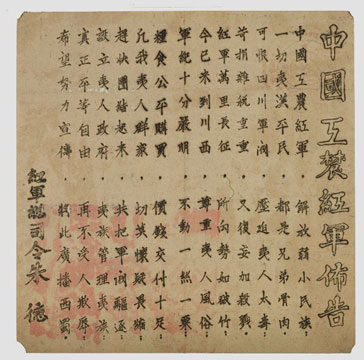 中國工農紅軍佈告
中國工農紅軍,解放弱小民族,
一切夷漢平民,都是兄弟骨肉。
可恨四川軍閥,壓迫夷人太毒,
苛捐雜稅重重,又復妄加殺戮。
紅軍萬里長征,所向勢如破竹,
今已來到川西,尊重夷人風俗。
軍紀十分嚴明,不動一絲一粟,
糧食公平購買,價錢交付十足。
凡我夷人群衆,切莫懷疑畏縮,
趕快團結起來,共把軍閥驅逐。
設立夷人政府,夷族管理夷族,
真正平等自由,再不受人欺辱。
希望努力宣傳,將此廣播西蜀。
紅軍總司令朱德